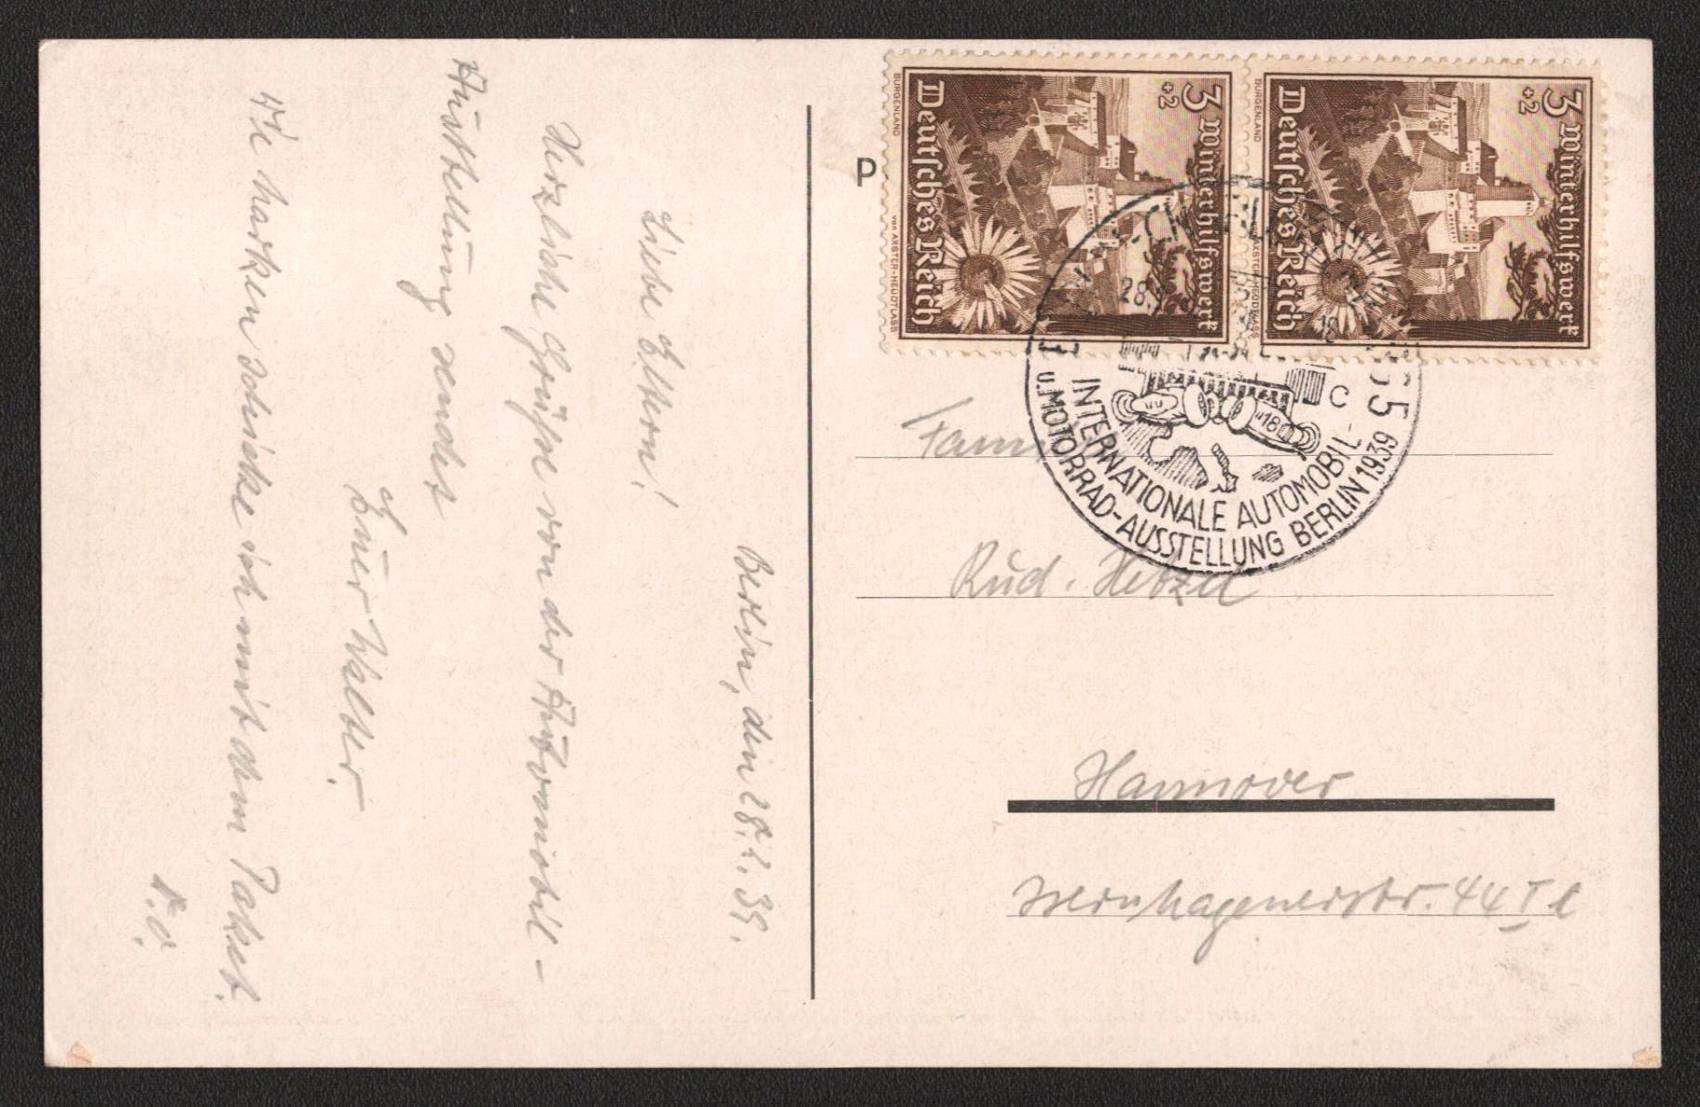 Berlin, den 28.2.39.
Liebe Eltern!
Herzliche Grüße von der Automobil-
Ausstellung sendet
Euer Walter.
Die Marken schicke ich mit dem Paket.
D.O.
P
3 Winterhilfswerk
+2
Deutsches Reich
BURGENLAND
von AXSTER-HEUDTLASS
3 Winterhilfswerk
+2
Deutsches Reich
BURGENLAND
28.
C
INTERNATIONALE AUTOMOBIL-
u. MOTORRAD-AUSSTELLUNG BERLIN 1939
Fam
Rud. Hetzel
Hannover
44 I l